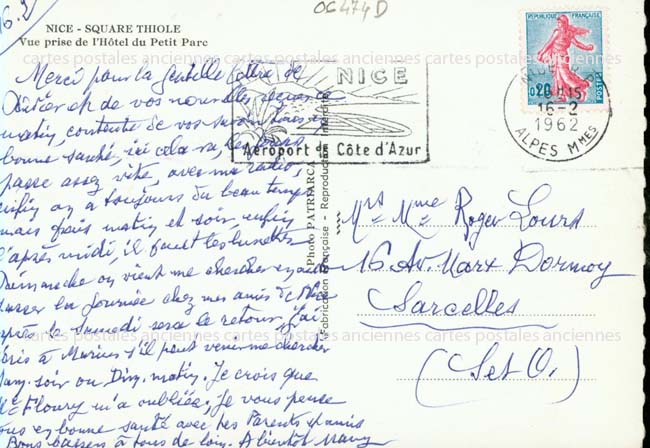 16.2
06474D
NICE - SQUARE THIOLE
Vue prise de l'Hôtel du Petit Parc
cartes postales anciennes cartes postales anciennes cartes postales anciennes
Merci pour la gentille lettre de
et de vos nouvelles reçues ce
matin, contente de vos savoir tous en
bonne santé, ici cela va, les jours
passe assez vite, avec ma radio,
enfin on a toujours du beau temps
mais frais matin et soir, enfin
l'après midi, il faut les lunettes
Dimanche on vient me chercher
passer la journée chez mes amis de Nice
après le samedi sera le retour, j'ai
écris à Marius s'il peut venir me chercher
Sam. soir ou Dim. matin. Je crois que
Fleury m'a oubliée, Je vous pense
tous en bonne santé avec les Parents et amis
Bons baisers à tous de loin. A bientôt
Photo PATRIARCA
Fabrication Française - Reproduction Interdite
NICE
Aéroport de Côte d'Azur
REPUBLIQUE FRANÇAISE
0,20
POSTES
NICE
16-2
1962
ALPES MMES
Mrs Mme Roger Louis
16 Av. Marx Dormoy
Sarcelles
(Set O.)
cartes postales anciennes cartes postales anciennes cartes postales anciennes